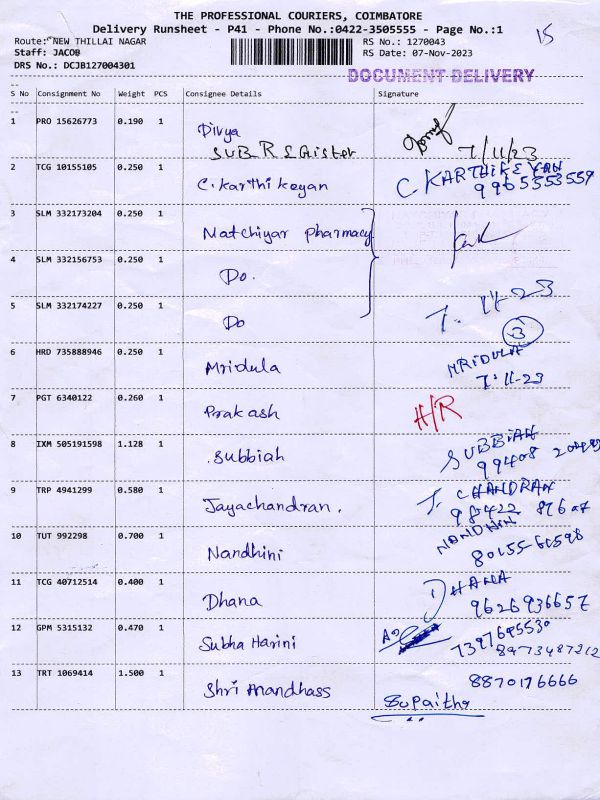 THE PROFESSIONAL COURIERS, COIMBATORE
Delivery Runsheet - P41 - Phone No.:0422-3505555 - Page No.:1
Route: NEW THILLAI NAGAR RS No.: 1270043
Staff: JACOB RS Date: 07-Nov-2023
DRS No.: DCJB127004301
15
DOCUMENT DELIVERY
S No Consignment No Weight PCS Consignee Details Signature
1 PRO 15626773 0.190 1 Divya
SUB REGister 7/11/23
2 TCG 10155105 0.250 1 C. Karthikeyan C. KARTHIKEYAN
9965553559
3 SLM 332173204 0.250 1 Matchiyar pharmacy
4 SLM 332156753 0.250 1 Do.
5 SLM 332174227 0.250 1 Do 7-11-23
3
6 HRD 735888946 0.250 1 Mridula MRIDULA
7-11-23
7 PGT 6340122 0.260 1 Prakash H/R
8 IXM 505191598 1.128 1 Subbiah SUBBIAH
99408
9 TRP 4941299 0.580 1 Jayachandran. J. CHANDRAN
98422 87607
10 TUT 992298 0.700 1 Nandhini NANDHINI
11 TCG 40712514 0.400 1 Dhana DHANA
9626936657
12 GPM 5315132 0.470 1 Subha Harini 7397695530
8973487212
13 TRT 1069414 1.500 1 Shri Anandhass 8870176666